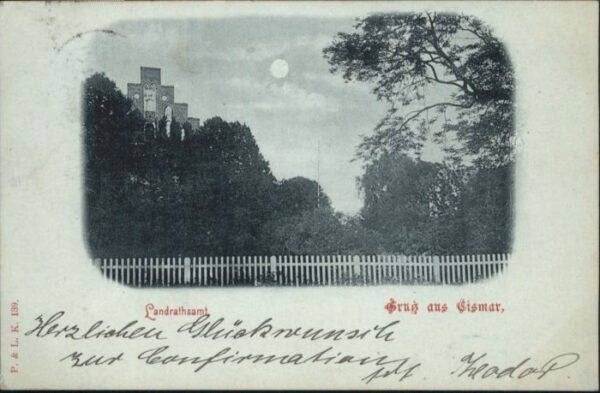 Landrathsamt.
Gruß aus Cismar,
P. & L. K. 139.
Herzlichen Glückwunsch
zur Confirmation
Theodor P.